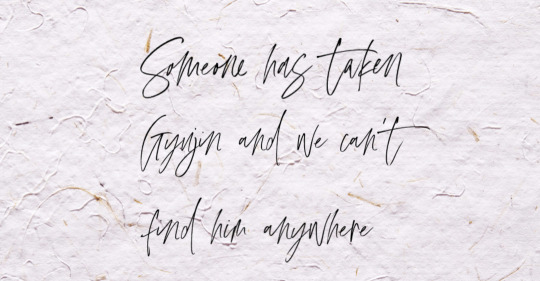 Someone has taken
Gyujin and we can't
find him anywhere